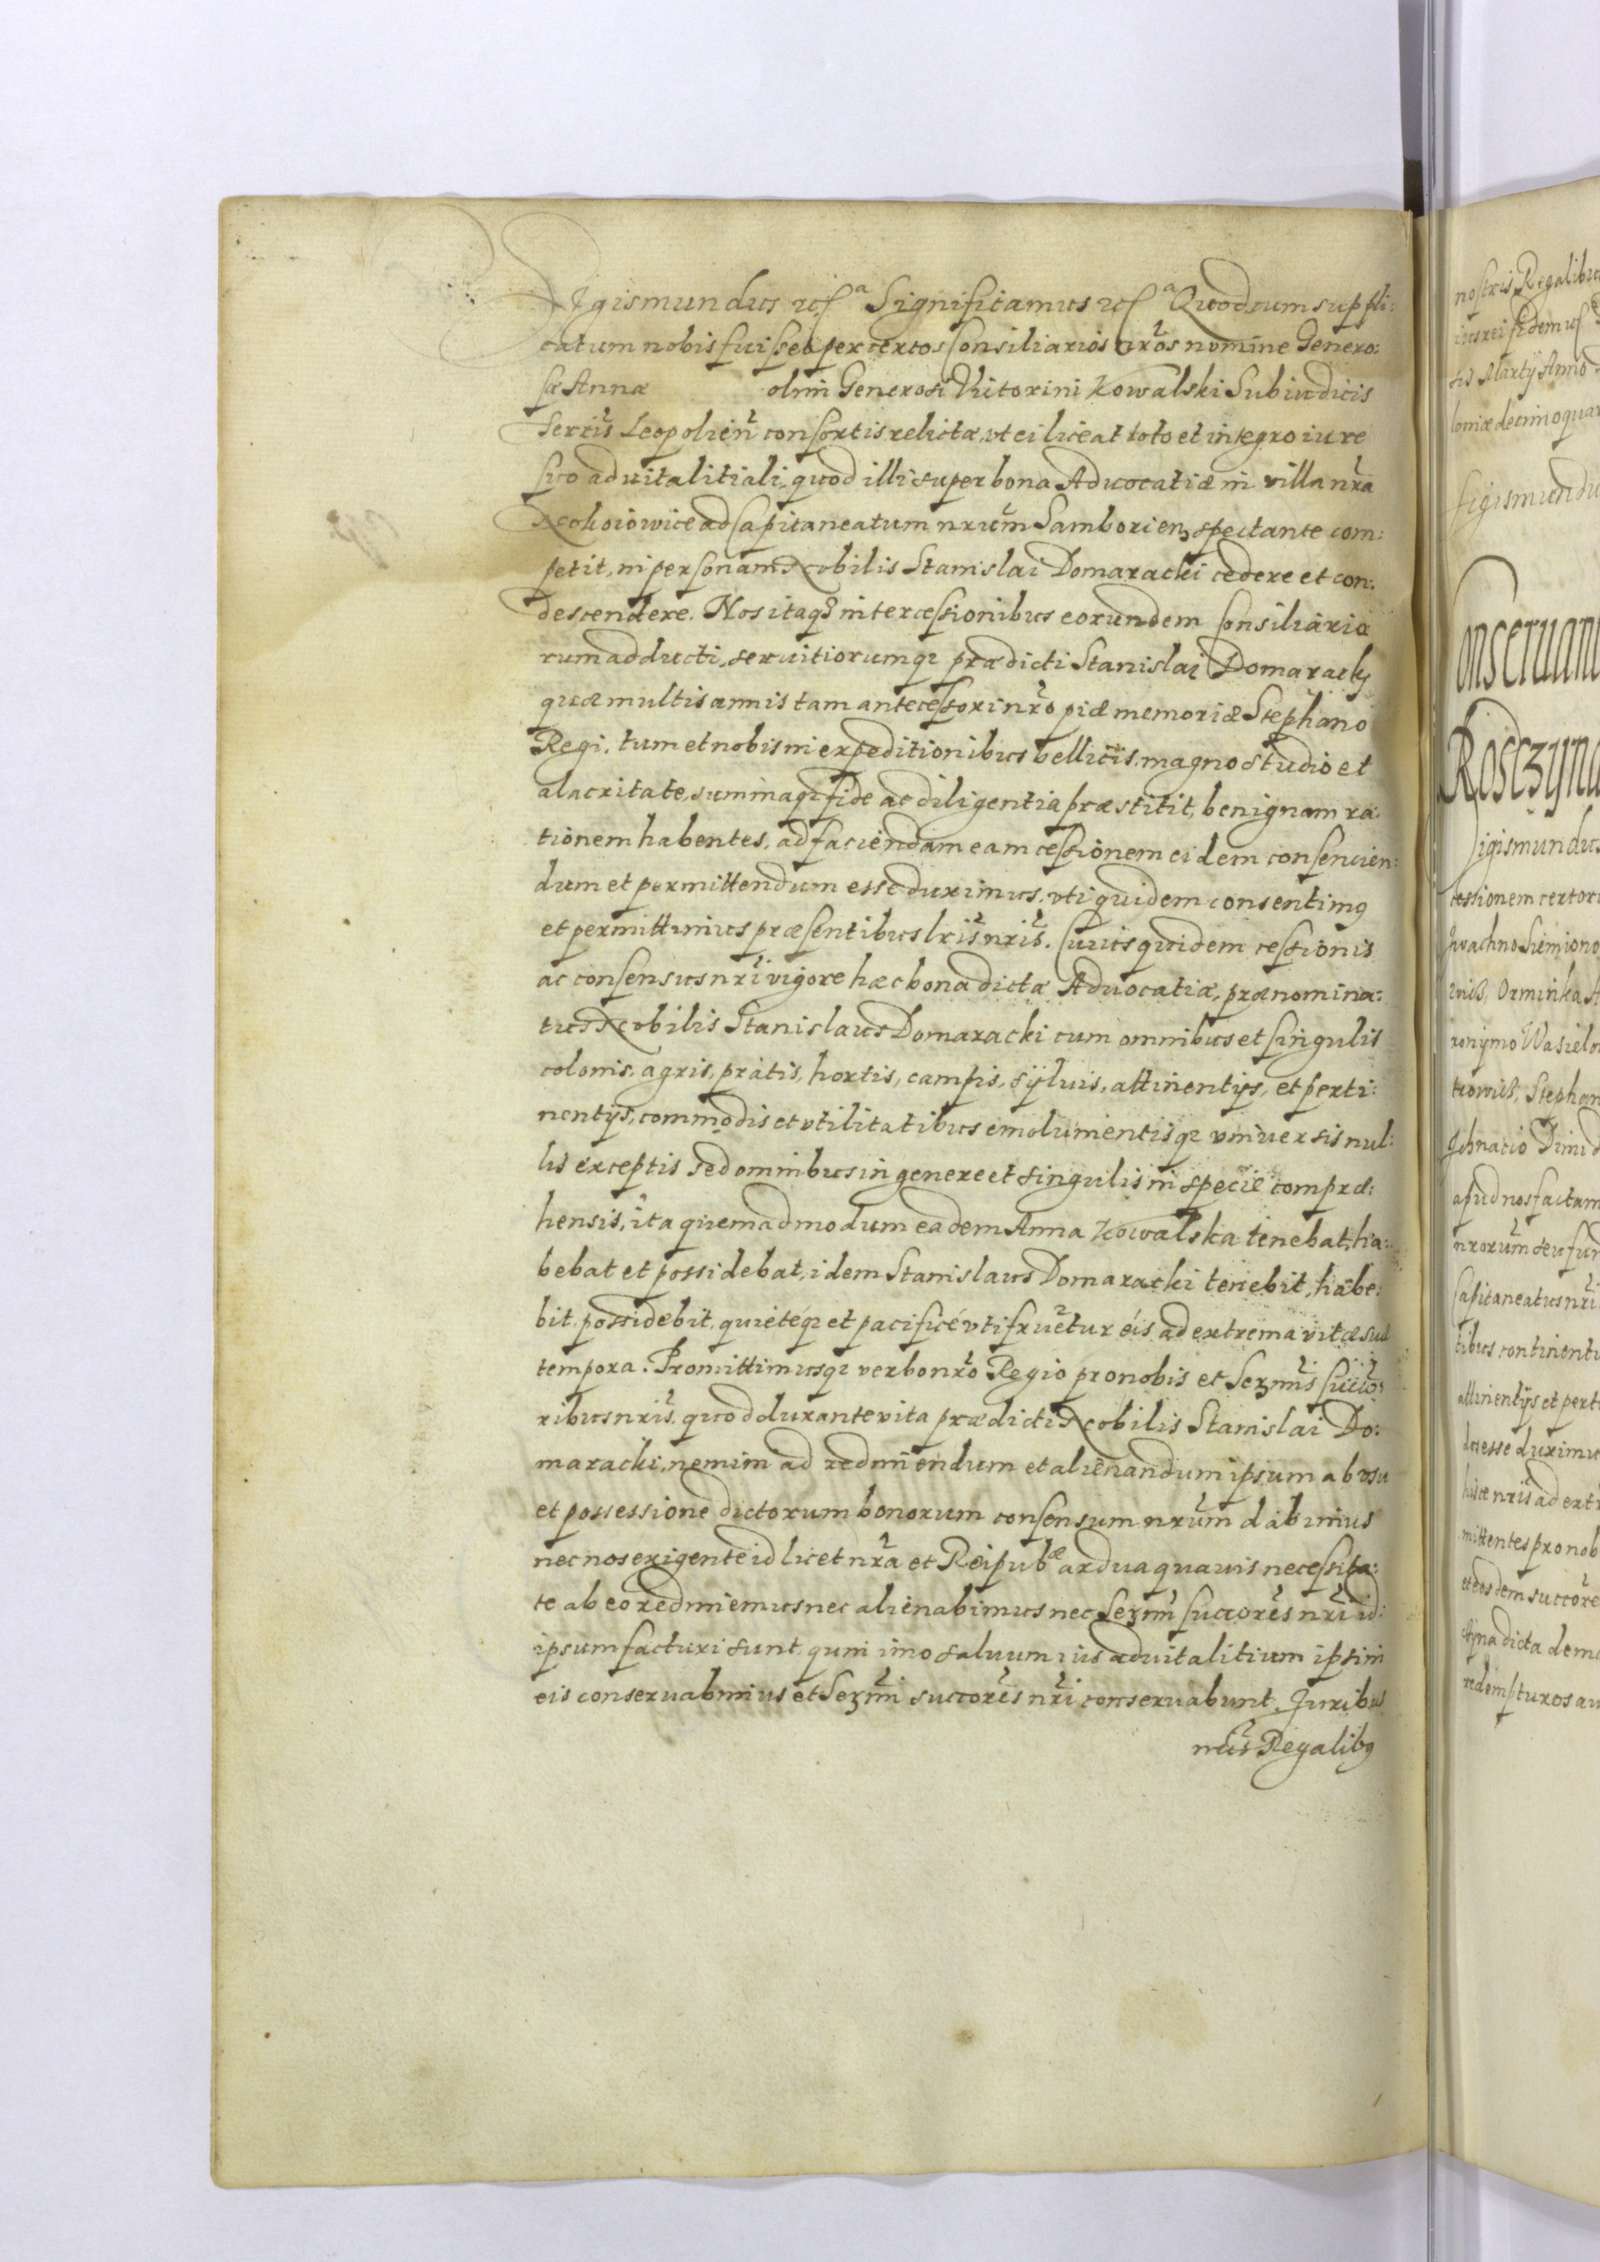 Sigismundus etc͠a Significamus etc͠a Quod cum suppli:
catum nobis fuisset per certos Consiliarios nr̃os nomine Genero:
sæ Annæ olim Generosi Victorini Kowalski Subiudicis
Terr̃is Leopolien̄ consortis relictæ, vt ei liceat toto et integro iure
suo aduitalitiali, quod illi super bona Aduocatiæ in villa nr̃a
ad Capitaneatum nr̃um Samborien̄ spectante com:
petit, in personam Nobilis Stanislai Domaracki cedere et con:
descendere. Nos itaq3 intercessionibus eorundem Consiliario
rum adducti, seruitiorumq3 prædicti Stanislai Domaracki
quæ multis annis tam antecessori nr̃o piæ memoriæ Stephano
Regi, tum et nobis in expeditionibus bellicis, magno studio et
alacritate, summaq3 fide ac diligentia præstitit, benignam ra:
tionem habentes, ad faciendam eam cessionem eidem consencien:
dum et permittendum esse duximus, vti quidem consentimus
et permittimus præsentibus lr̃is nr̃is. Cuius quidem cessionis
ac consensus nr̃i vigore hæc bona dictæ Aduocatiæ, prænomina:
tus Nobilis Stanislaus Domaracki cum omnibus et singulis
colonis, agris, pratis, hortis, campis, syluis, attinentijs, et perti:
nentijs, commodis et vtilitatibus emolumentisq3 vniuersis nul:
lis exceptis sed omnibus in genere et singulis in specie compræ:
hensis, ita quemadmodum eadem Anna Kowalska tenebat, ha:
bebat et possidebat, idem Stanislaus Domaracki tenebit, habe:
bit, possidebit, quietéq3 et pacificé vti fruetur eis ad extrema vitæ suæ
tempora. Promittimusq3 verbo nr̃o Regio pro nobis et Ser̃mis succo:
ribus nr̃is, quod durante vita prædicti Nobilis Stanislai Do:
maracki, nemini ad redimendum et alienandum ipsum ab vsu
et possessione dictorum bonorum consensum nr̃um dabimus
nec nos exigente id licet nr̃a et Reipubᶜæ ardua quauis necessita:
te ab eo redimemus nec alienabimus nec Ser̃mi succores nr̃i id
ipsum facturi sunt, quin imo saluum ius aduitalitium ipsi in
eis conseruabimus et Ser̃mi succores nr̃i conseruabunt. Iuribus
nr̃is Regalibus
nostris Regalibus
Sigismundu
Conseruant
Sigismundus
cessionem certoru
Stephan
apud nos factam
nr̃orum seu
Capitaneatus nr̃i
tibus continentu
attinentijs et perti
esse duximu
nr̃is ad extr
mittentes pro nob
et eosdem succore
dicta demo
redempturos au